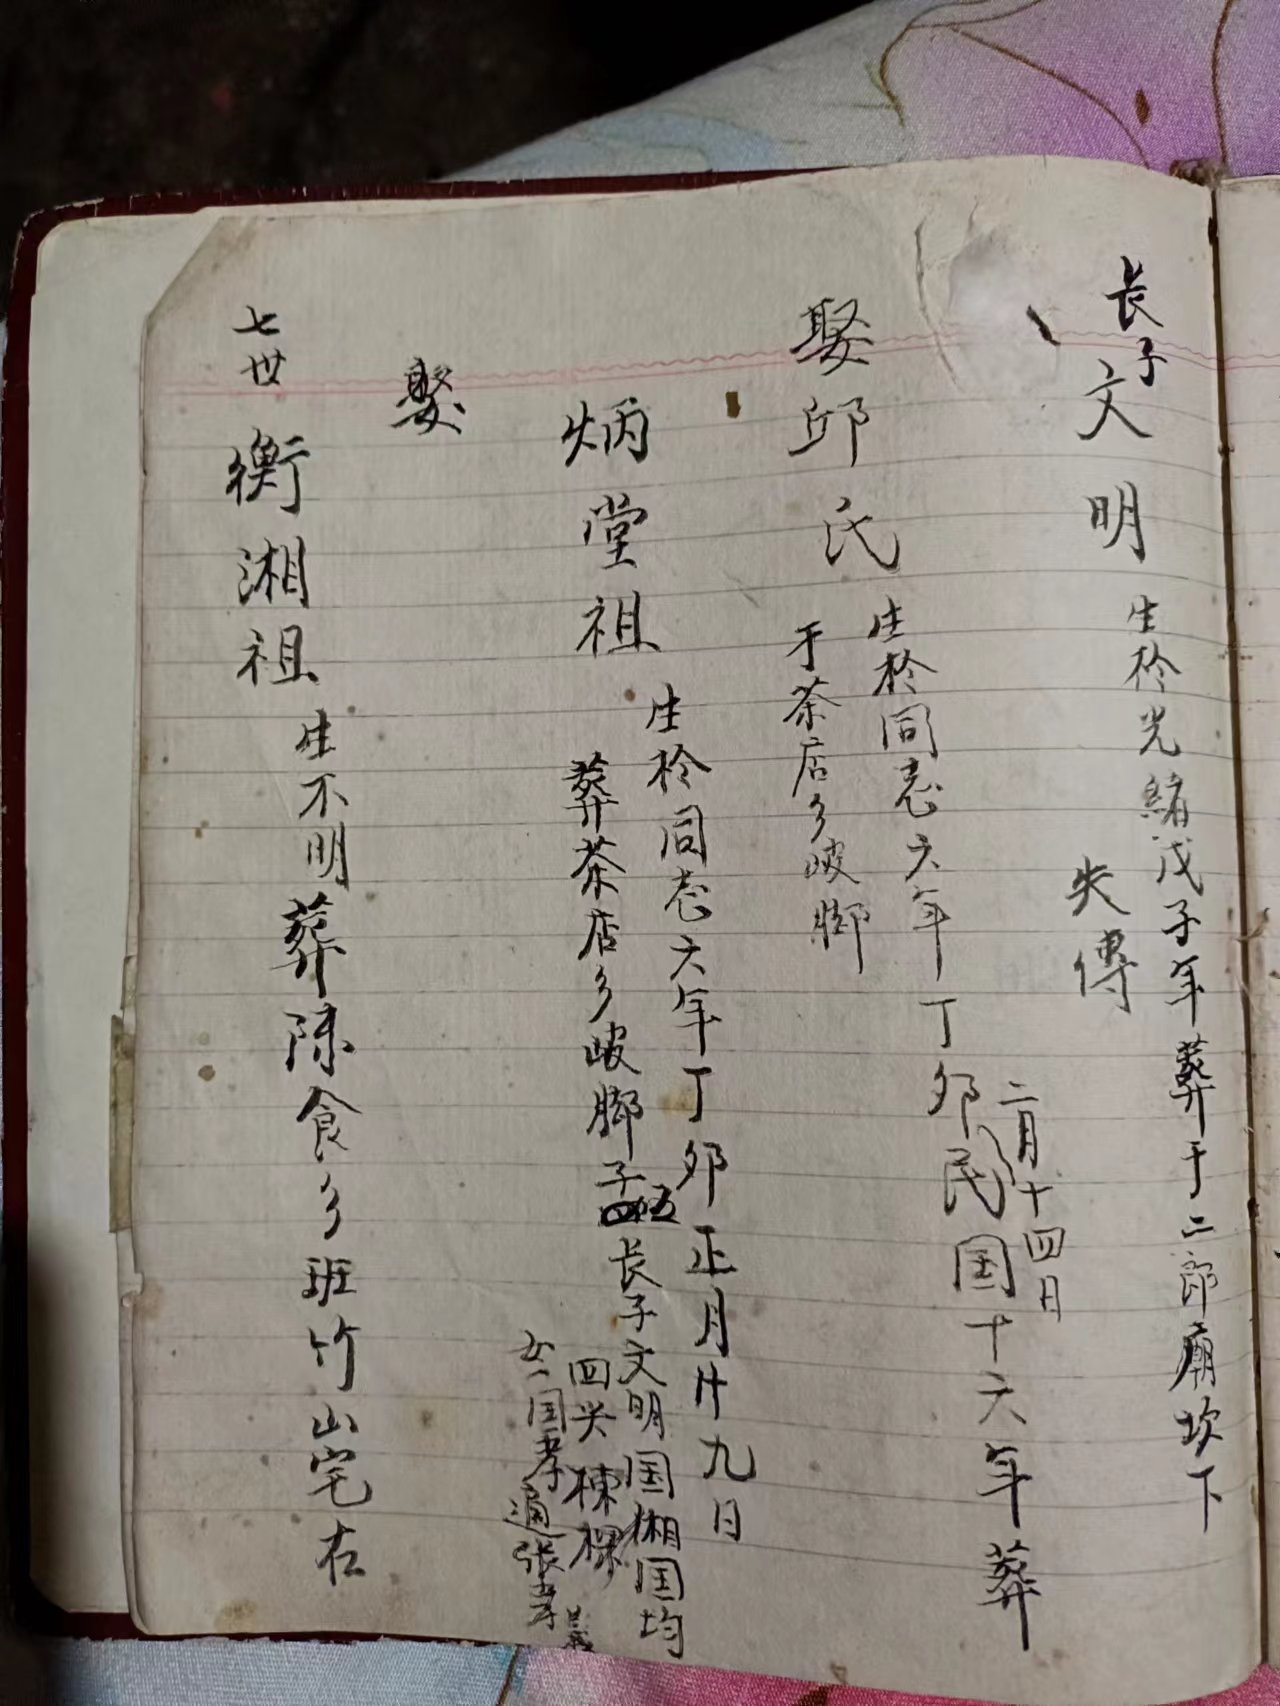 长子文明生於光緒戊子年葬于二郎廟坎下
失傳
娶邱氏生於同志六年丁卯民国十六年葬
二月十四日
于茶店乡岐脚
炳堂祖生於同志六年丁卯正月廿九日
葬茶店乡岐脚子五长子文明国湘国均
四头栋樑
女一国孝適张
娶
七世衡湘祖生不明葬陈食乡班竹山宅右